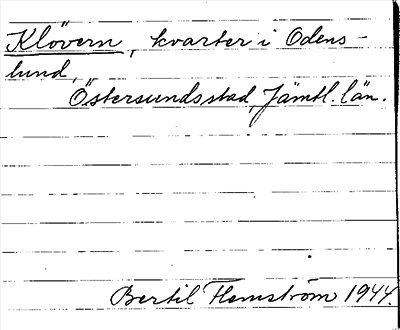 Klövern, kvarter i Odens-
lund,
Östersunds stad, Jämtl. län.
Bertil Flemström 1944.